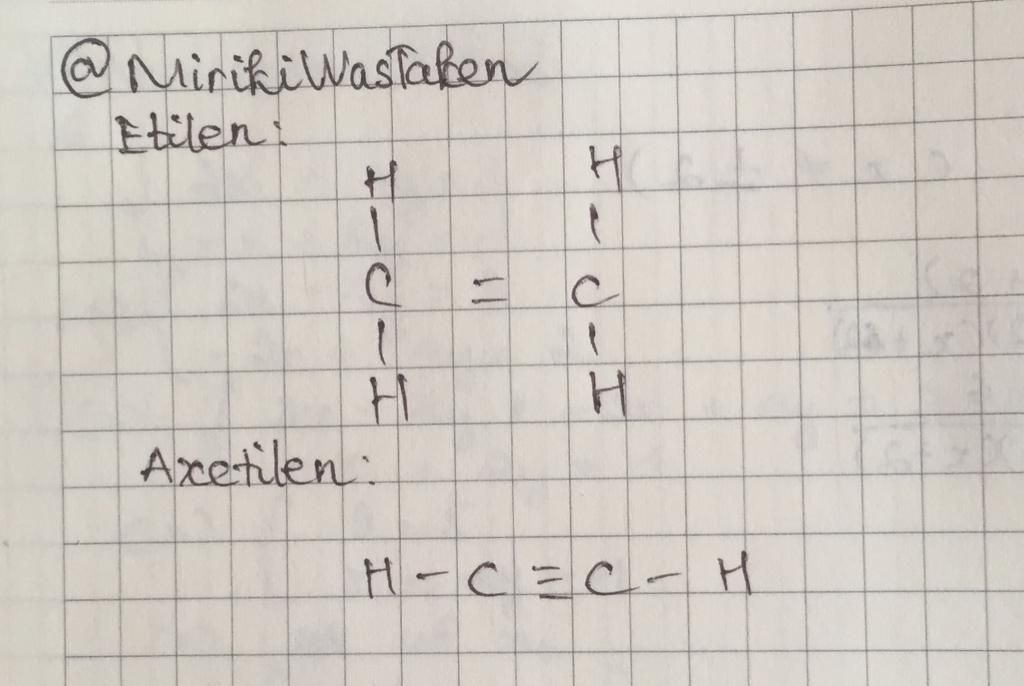 @MirikiWasTaken
Etilen:
H H
| |
C = C
| |
H H
Axetilen:
H - C ≡ C - H